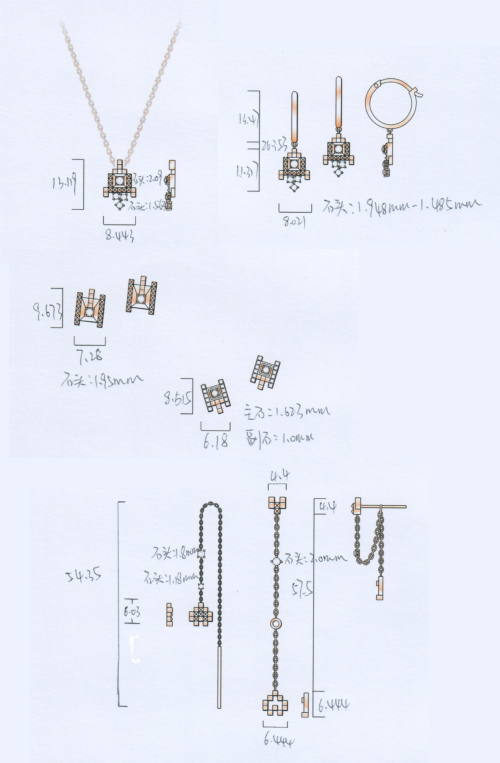 13.119
石头:2.09
石头:1.568
8.443
15.47
26.353
11.317
8.021
石头:1.948mm-1.485mm
9.673
7.28
石头:1.95mm
8.515
6.18
主石:1.623mm
副石:1.0mm
54.35
石头:1.8mm
石头:1.18mm
6.03
4.4
4.4
石头:2.0mm
57.5
6.444
6.444